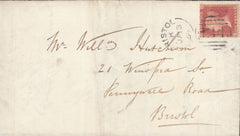 BRISTOL
Mr. Willm Hutchison
21 Winsford St.
Pennywell Road
Bristol